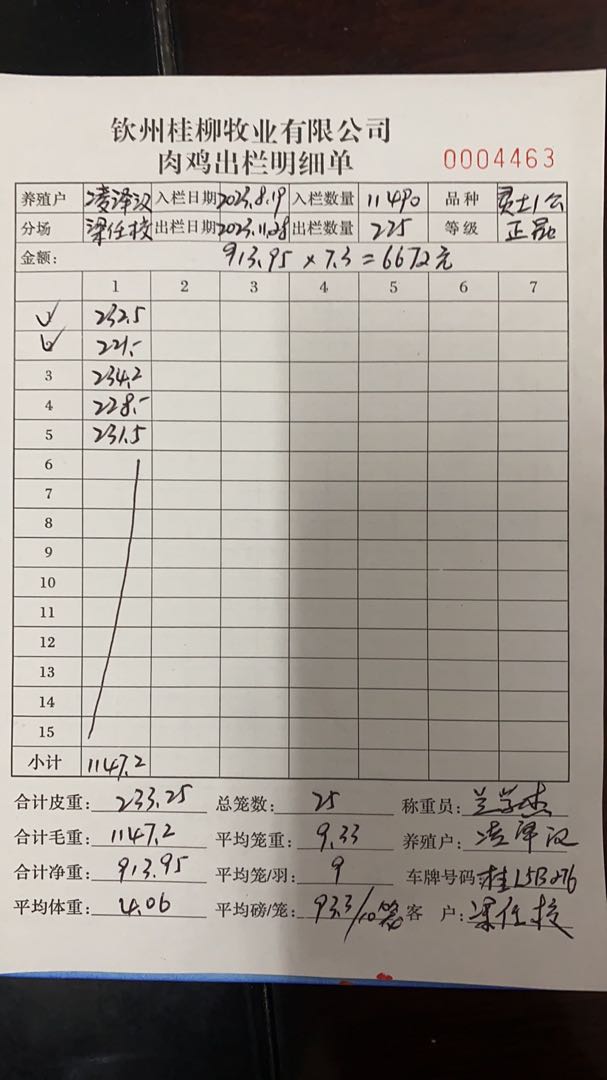 钦州桂柳牧业有限公司
肉鸡出栏明细单 0004463
养殖户 凌泽汉 入栏日期 2023.8.19 入栏数量 11490 品种
分场 梁任授 出栏日期 2023.11.28 出栏数量 225 等级 正品
金额: 913.95 × 7.3 = 6672元
1 2 3 4 5 6 7
232.5
221.-
3 234.2
4 228.-
5 231.5
6
7
8
9
10
11
12
13
14
15
小计 1147.2
合计皮重: 233.25 总笼数: 25 称重员:
合计毛重: 1147.2 平均笼重: 9.33 养殖户: 凌泽汉
合计净重: 913.95 平均笼/羽: 9 车牌号码 桂L5B276
平均体重: 4.06 平均磅/笼: 93.3/10笼 客 户: 梁任授